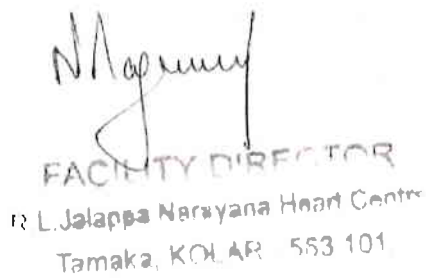 FACILITY DIRECTOR
R L.Jalappa Narayana Heart Centre
Tamaka, KOLAR 563 101